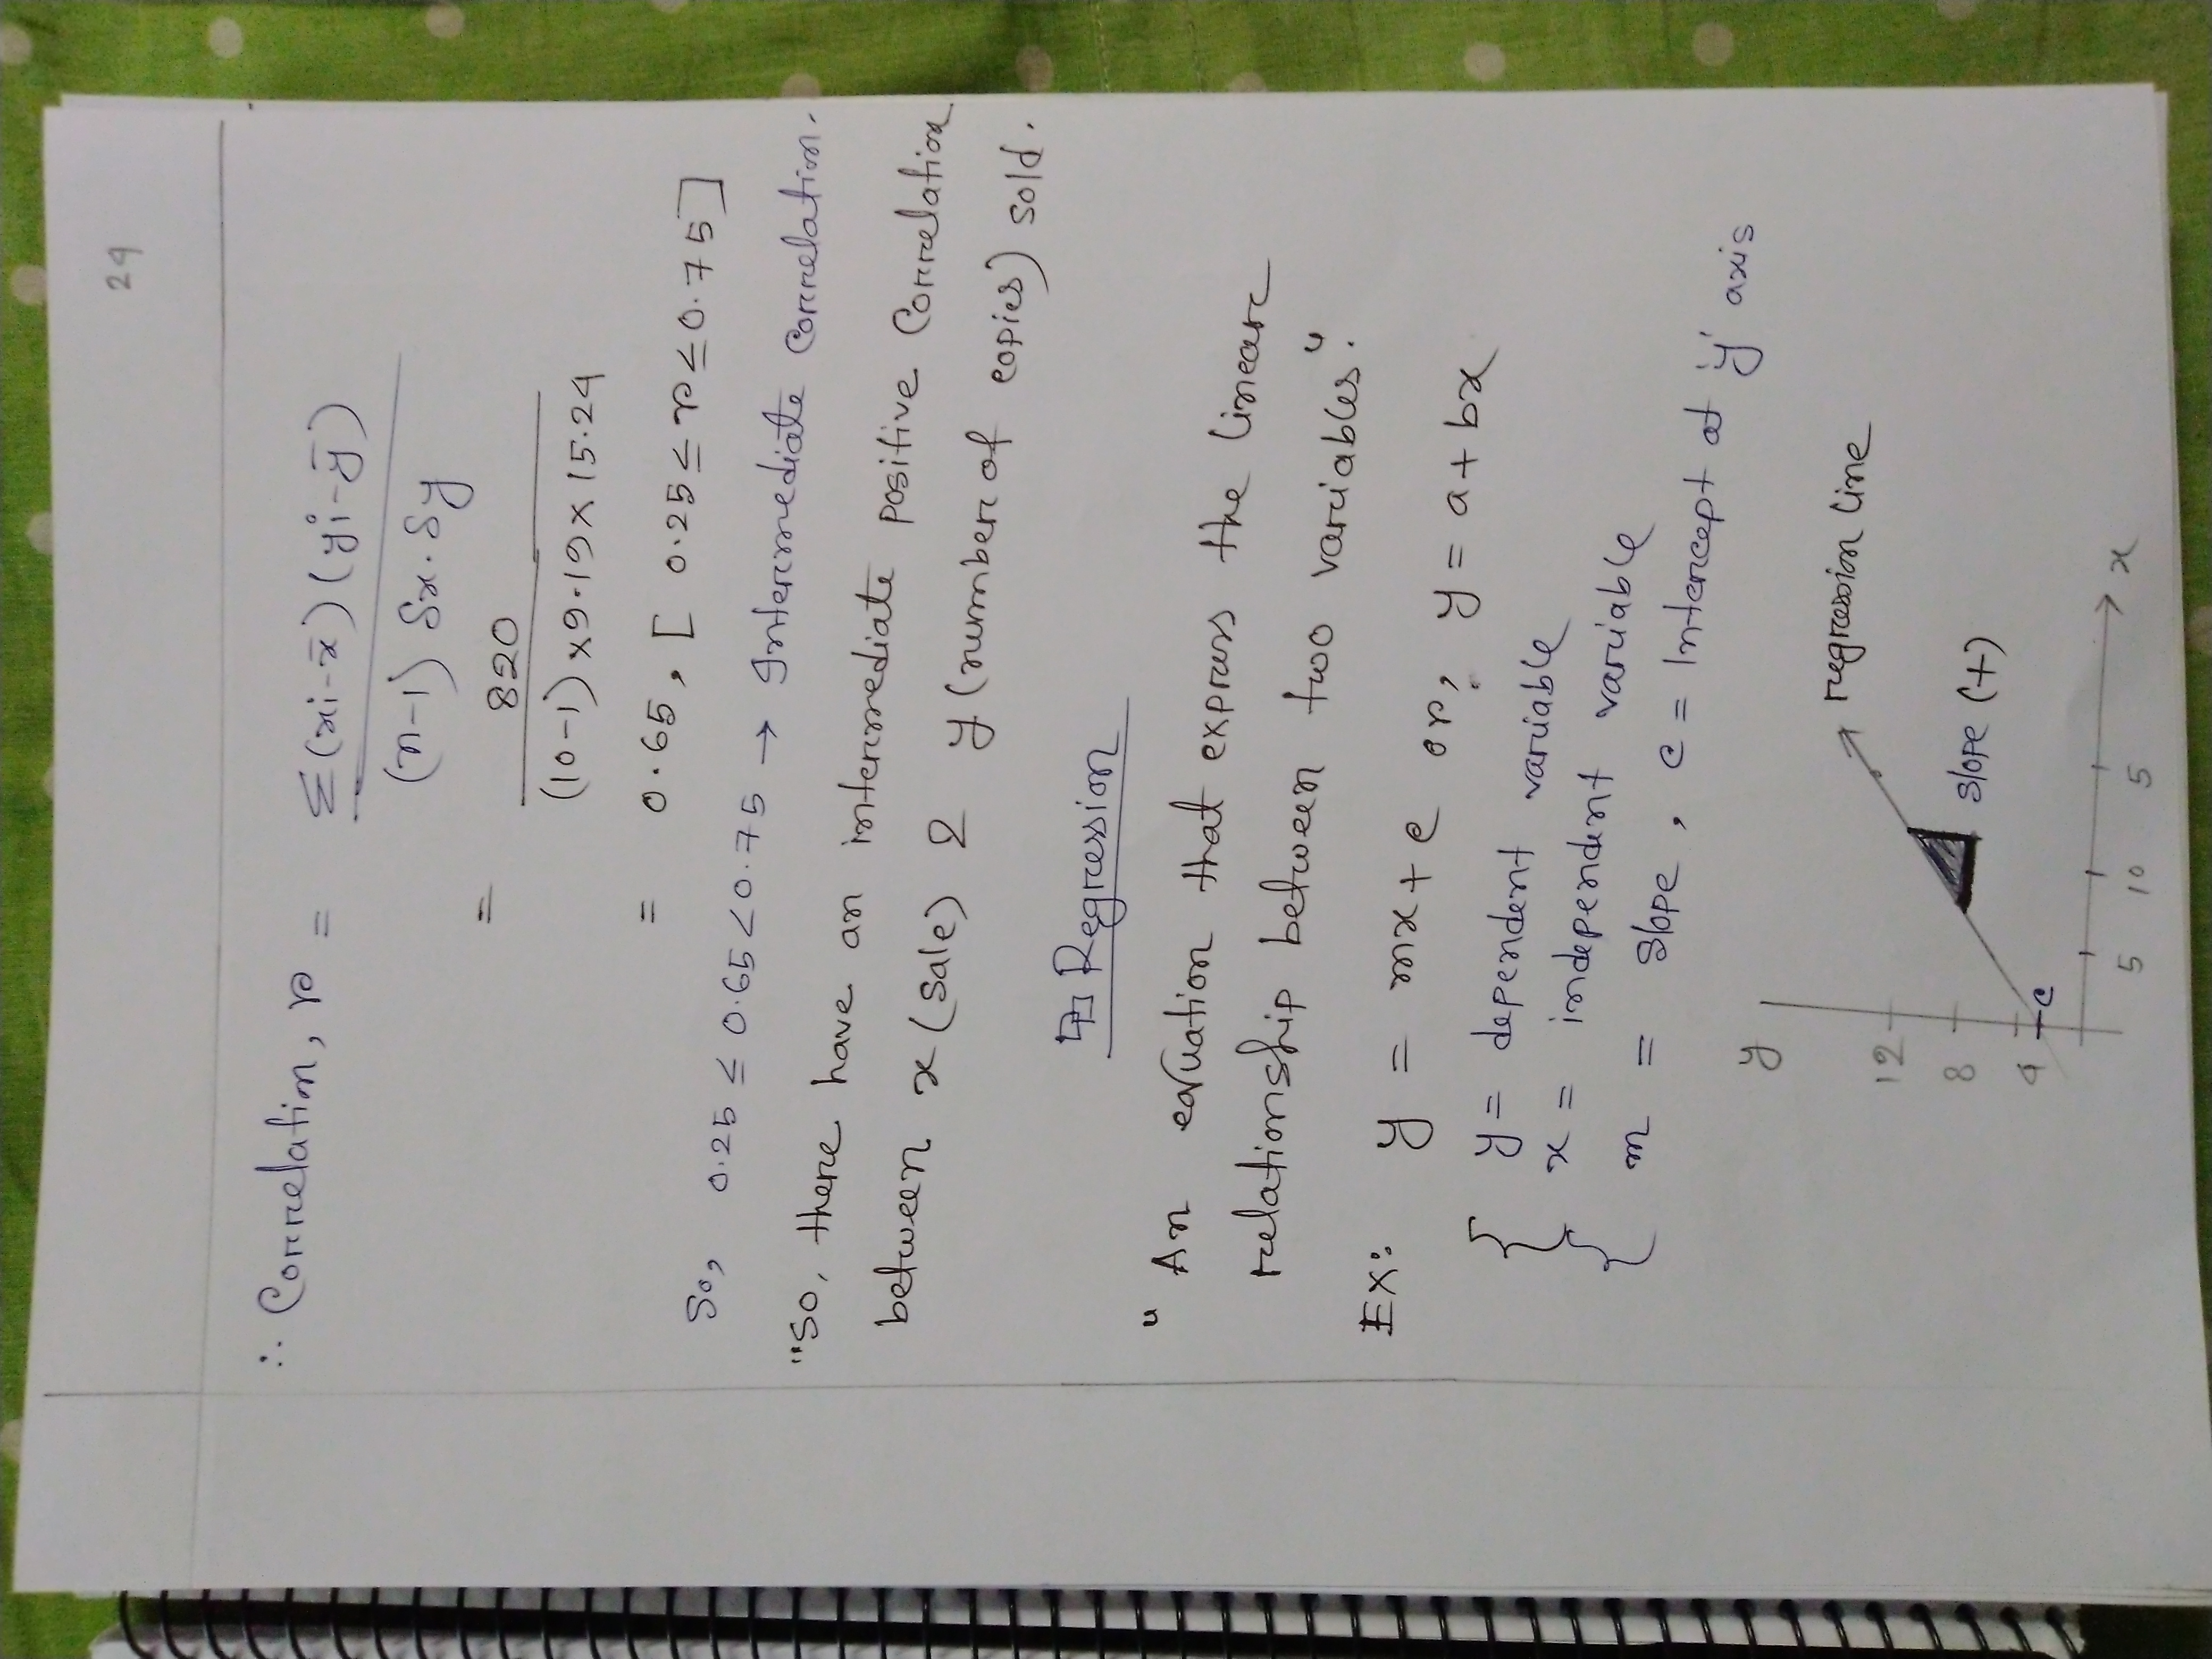 24
∴ Correlation, r = Σ(xi-x̄)(yi-ȳ) / (n-1) Sx.Sy
= 820 / (10-1)×9.19×15.24
= 0.65, [0.25 ≤ r ≤ 0.75]
So, 0.25 ≤ 0.65 < 0.75 → Intermediate Correlation.
"So, there have an intermediate positive Correlation
between x(sale) & y(number of copies) sold.
Regression
"An equation that express the linear
relationship between two variables."
EX: y = mx+c or, y = a+bx
y = dependent variable
x = independent variable
m = slope, c = Intercept at y axis
y
regression line
12
8
slope (+)
4
c
5 10 5 x